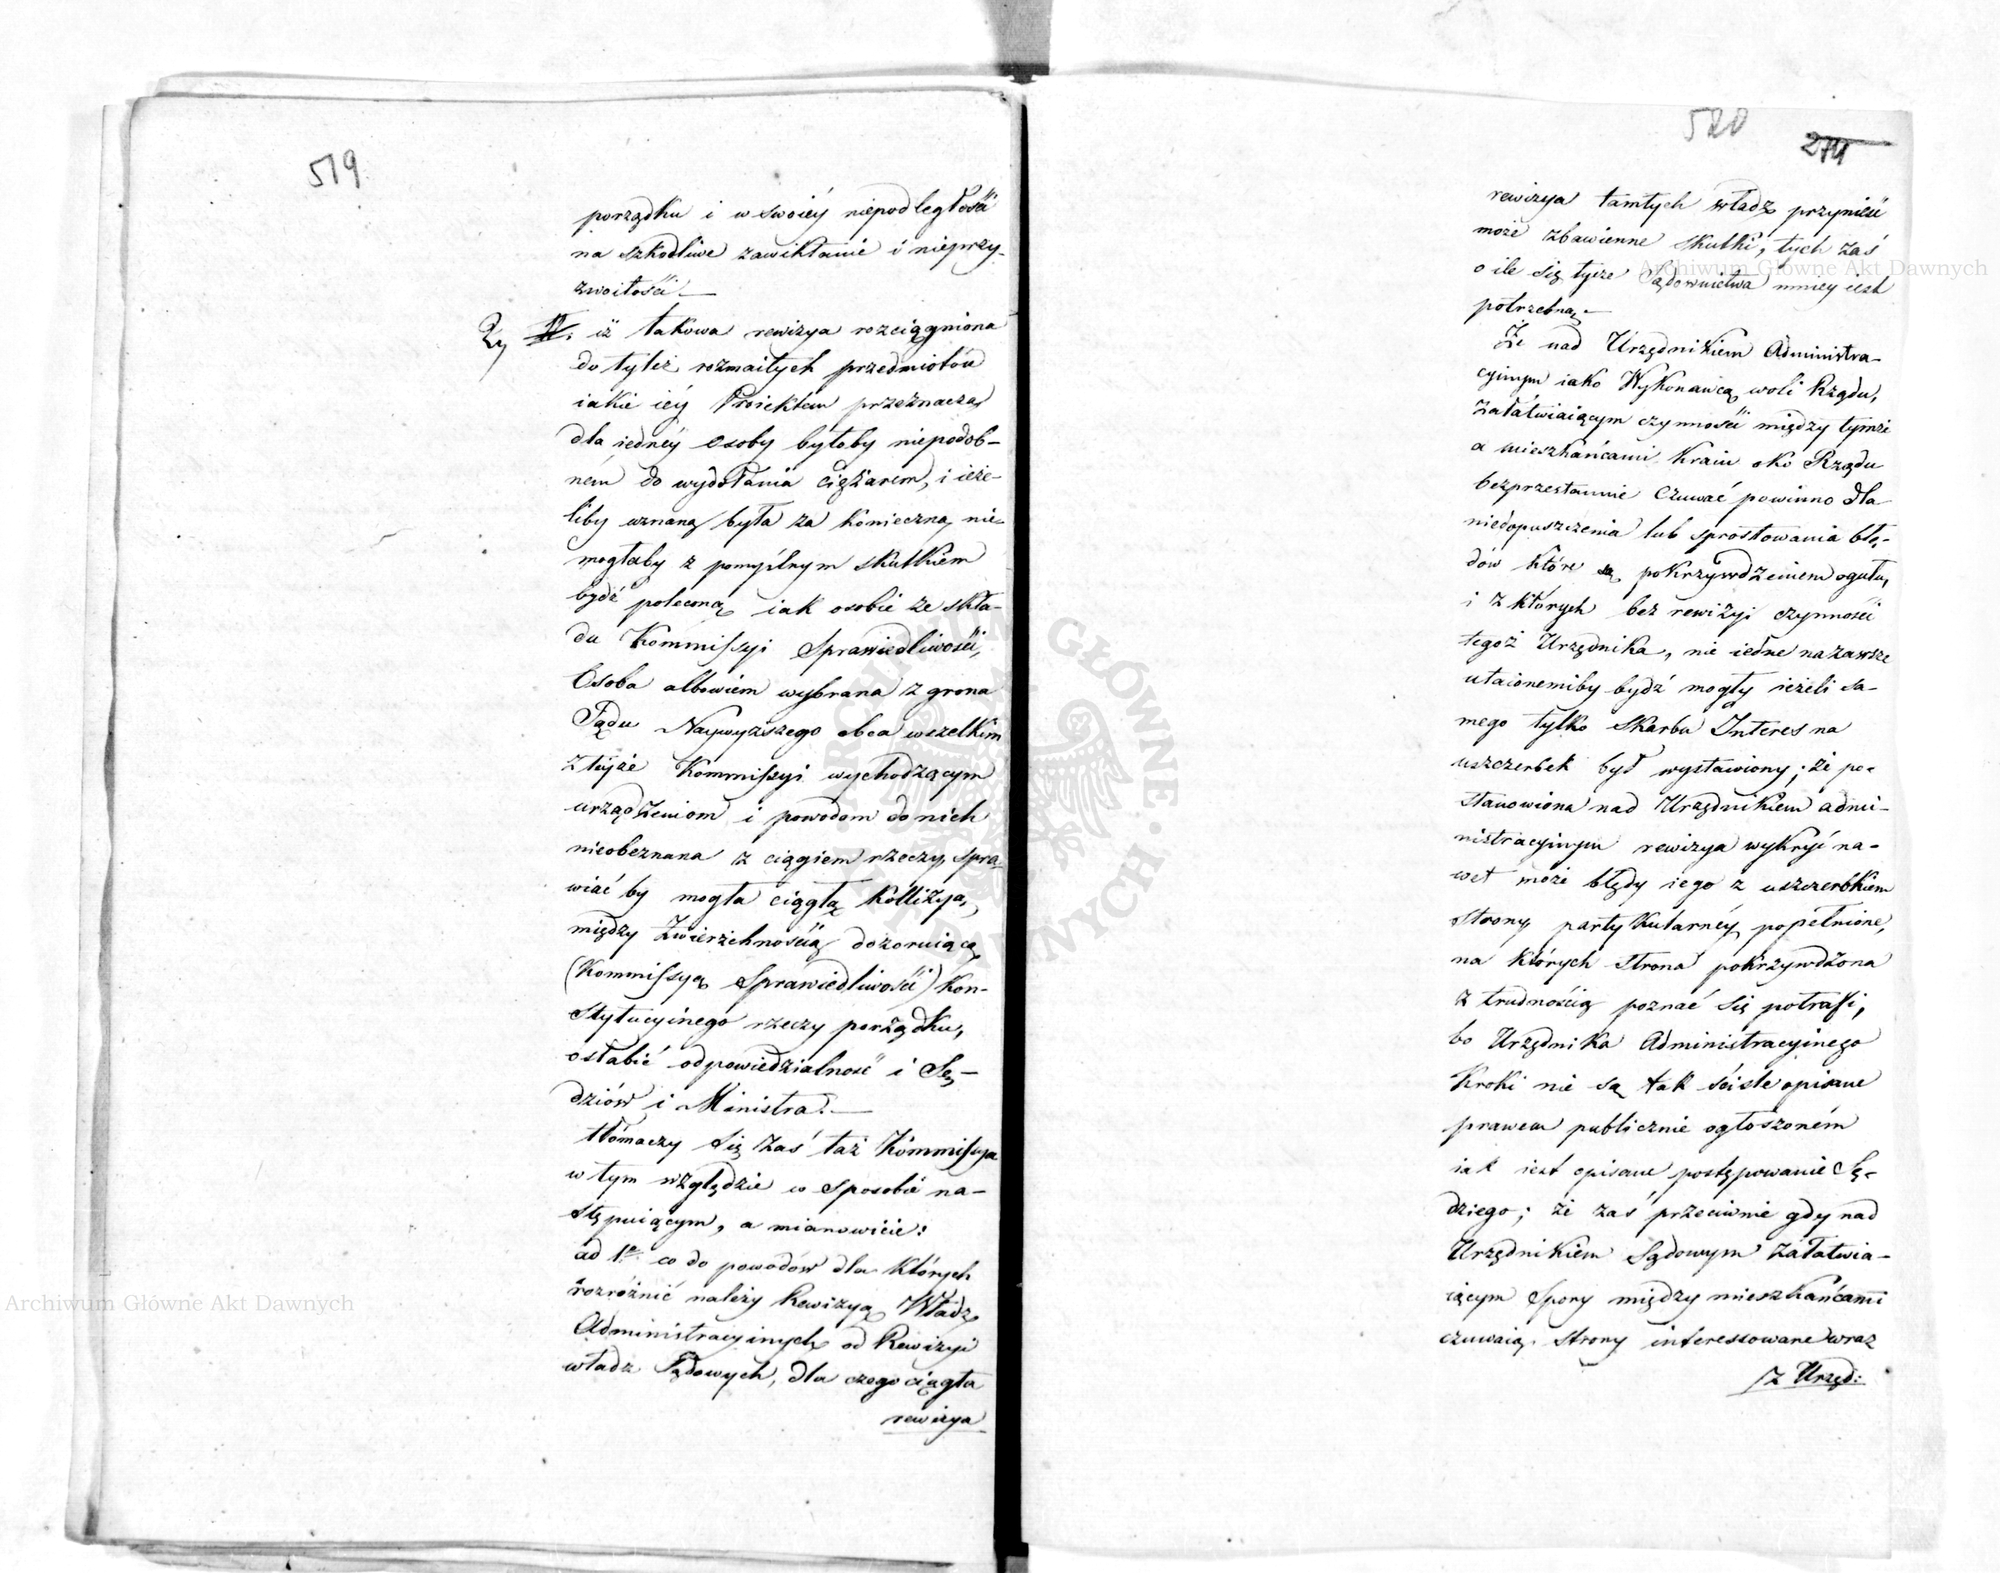 519
porządku i w swoiéy niepodległośći
na szkodliwe zawikłanie i nieprzy-
zwoitośći. —
2) II. iż takowa rewizya rozciągniona
do tyleż rozmaitych przedmiotów
iakie iéy Proiektem przeznacza,
dla iednéy Osoby byłoby niepodob-
nem do wydołania ciężarem, i ieże-
liby uznaną była za konieczną, nie-
mogłaby z pomyślnym skutkiem
bydź poleconą iak osobie ze skła-
du Kommifsyi Sprawiedliwośći,
Osoba albowiem wybrana z grona
Sądu Naywyższego obca wszelkim
z téyże Kommifsyi wychodzącym
urządzeniom i powodom do nich
nieobeznana z ciągiem rzeczy, spra-
wiać by mogła ciągłą kollizyą,
między Zwierzchnośćią dozoruiącą
(Kommifsyą Sprawiedliwośći) kon-
stytucyinego rzeczy porządku,
osłabić odpowiedzialność i Sę-
dziów i Ministra. —
tłómaczy się zaś taż Kommifsya
w tym względzie w sposobie na-
stępuiącym, a mianowicie:
ad 1o co do powodów dla których
rozróżnić należy Rewizyą Władz
Administracyinych od Rewizyi
władz Sądowych, dla czego ciągła
rewizya
520
274
rewizya tamtych władz przynieść
może zbawienne skutki, tych zaś
o ile się tycze Sądownictwa mniey iest
potrzebną. —
Że nad Urzędnikiem Administra-
cyinym iako Wykonawcą woli Rządu,
załatwiaiącym czynnośći między tymże
a mieszkańcami kraiu oko Rządu
bezprzestannie czuwać powinno dla
niedopuszczenia lub sprostowania błę-
dów które są pokrzywdzeniem ogułu,
i z których bez rewizyi czynnośći
tegoż Urzędnika, nie iedne na zawsze
utaionemiby bydź mogły ieżeli sa-
mego tylko Skarbu Interes na
uszczerbek był wystawiony; że po-
stanowiona nad Urzędnikiem admi-
nistracyinym rewizya wykryć na-
wet może błędy iego z uszczerbkiem
strony partykularnéy popełnione,
na których strona pokrzywdzona
z trudnością poznać się potrafi,
bo Urzędnika Administracyinego
kroki nie są tak ściśle opisane
prawem publicznie ogłoszoném
iak iest opisane postępowanie Sę-
dziego; że zaś przeciwnie gdy nad
Urzędnikiem Sądowym załatwia-
iącym Spory między mieszkańcami
czuwaią strony interessowane wraz
/z Urzęd:
Archiwum Główne Akt Dawnych
Archiwum Główne Akt Dawnych